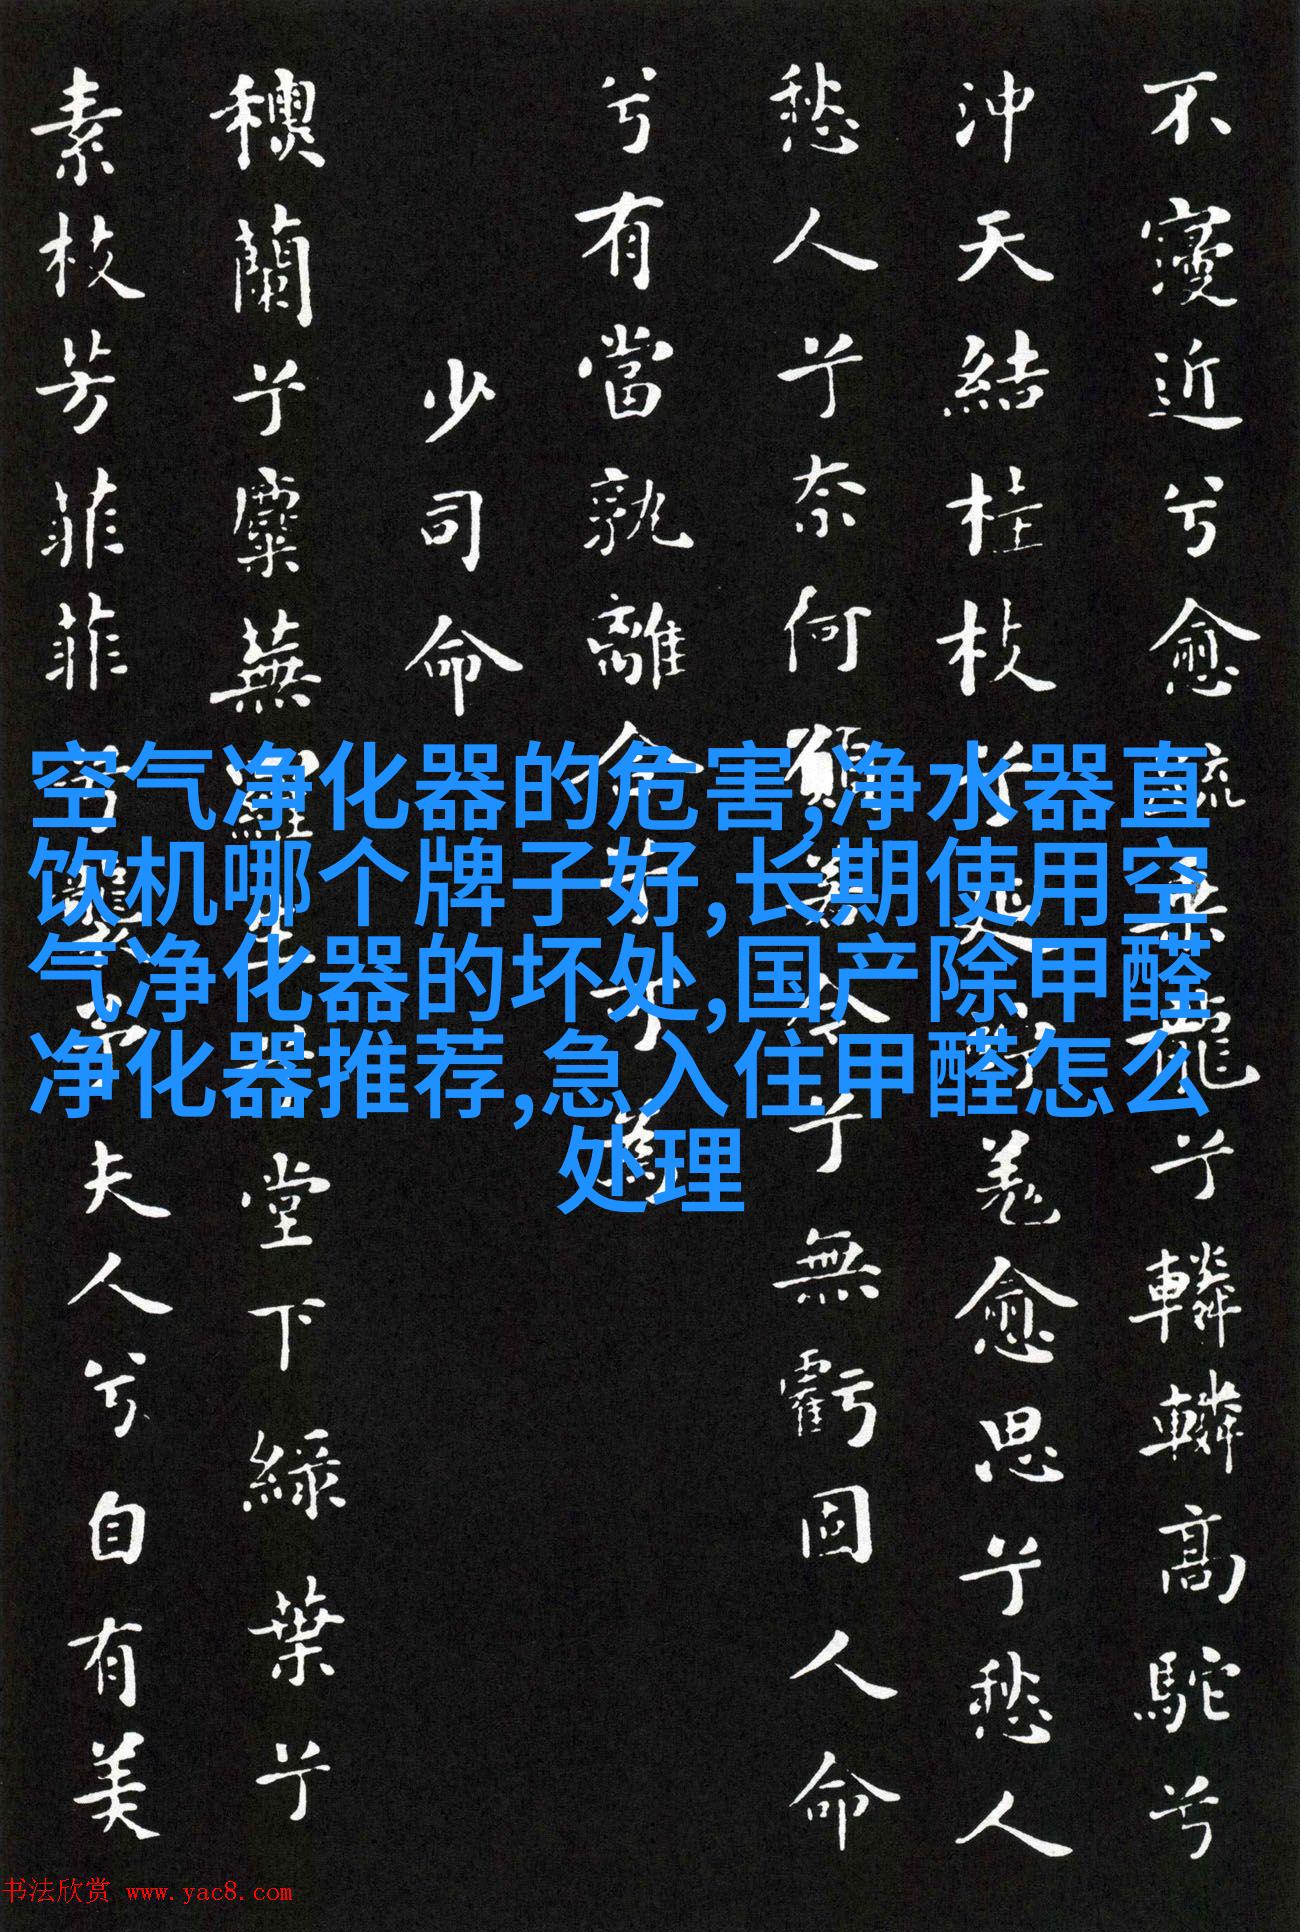 不寖近兮愈疏乘龍兮轔轔高駝兮
沖天結桂枝兮延竚羌愈思兮愁人
愁人兮奈何願若今兮無虧固人命
兮有當孰離合兮可為
少司命
蘭兮麋蕪羅生兮堂下綠葉兮
素枝芳菲菲兮襲予夫人兮自有美
空气净化器的危害,净水器直
饮机哪个牌子好,长期使用空
气净化器的坏处,国产除甲醛
净化器推荐,急入住甲醛怎么
处理
书法欣赏 www.yac8.com